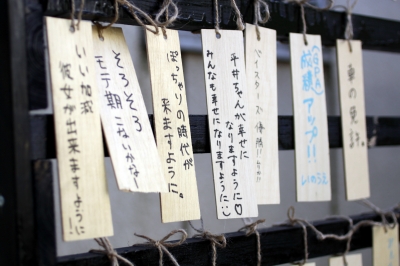 車の免許。
(GPA)
成績アップ!!
いのうえ
ベイスターズ 優勝
平井ちゃんが幸せに
なりますように♡
みんなも幸せになりますように
ぽっちゃりの時代が
来ますように。
そろそろ
モテ期こないかな〜
いい加減
彼女が出来ますように!